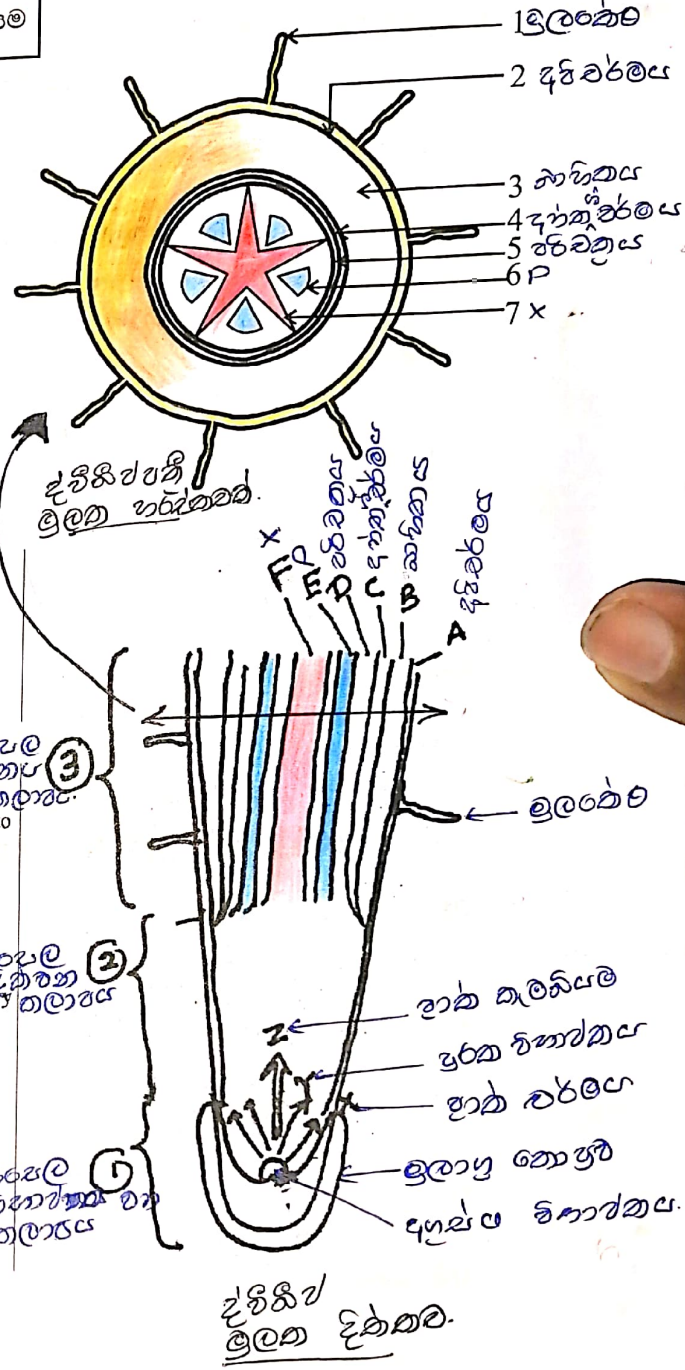 1 මූලකේශ
2 අපිචර්මය
3 බාහිකය
4 අන්තශ්චර්මය
5 පරිචක්‍රය
6 P
7 X
ද්වීබීජපත්‍රී
මූලක හරස්කඩක්.
X
P
පරිචක්‍රය
අන්තශ්චර්මය
බාහිකය
අපිචර්මය
F
E
D
C
B
A
3
මූලකේශ
2
Z
ප්‍රාක් කැම්බියම
Y
පූරක විභාජකය
X
ප්‍රාක් චර්මය
1
මූලාග්‍ර කොපුව
අග්‍රස්ථ විභාජකය.
ද්වීබීජ
මූලක දික්කඩ.